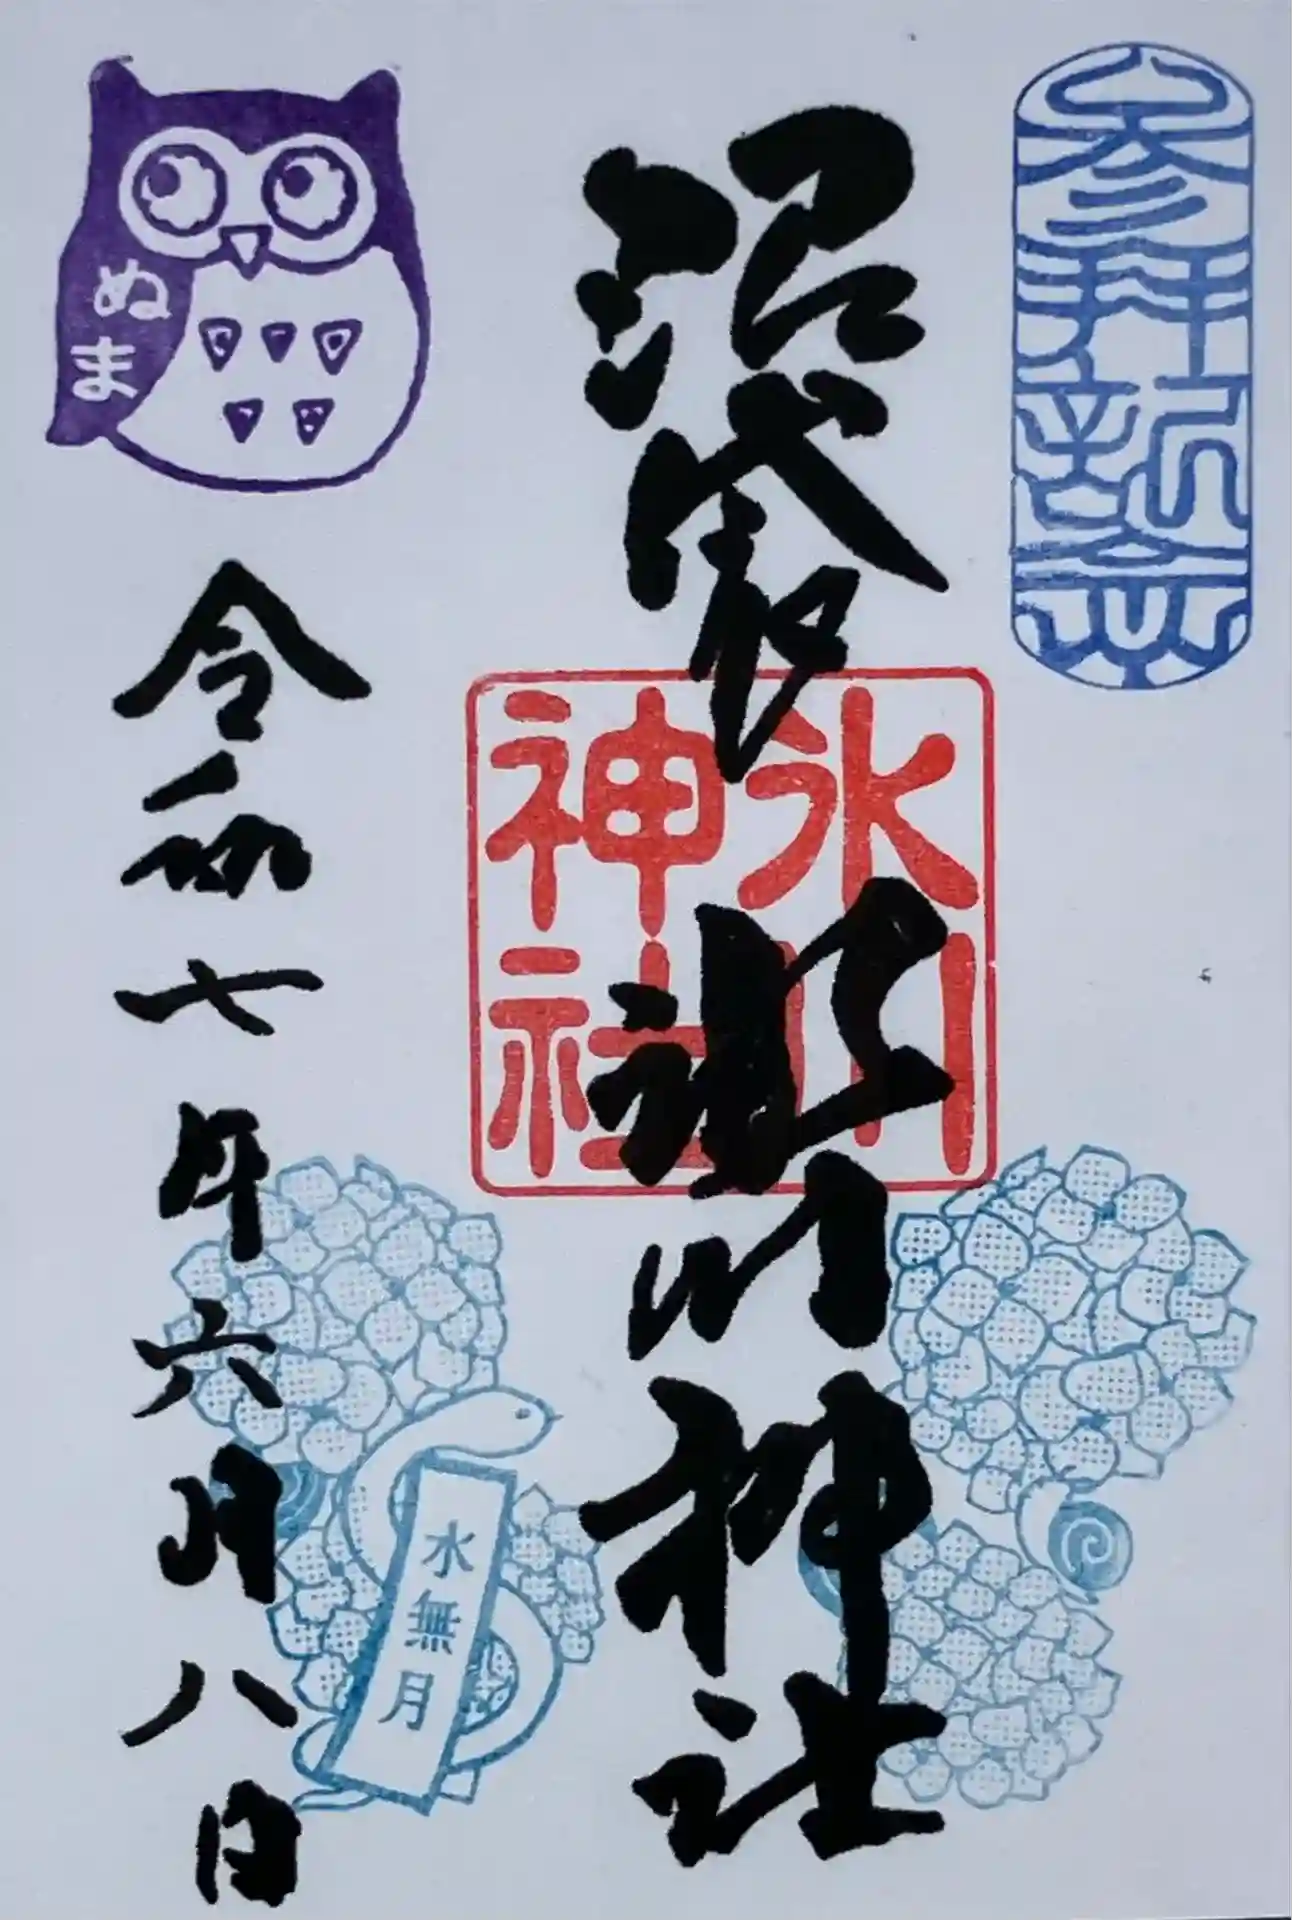 参拝記念
沼袋氷川神社
氷川
神社
ぬま
令和七年六月八日
水無月